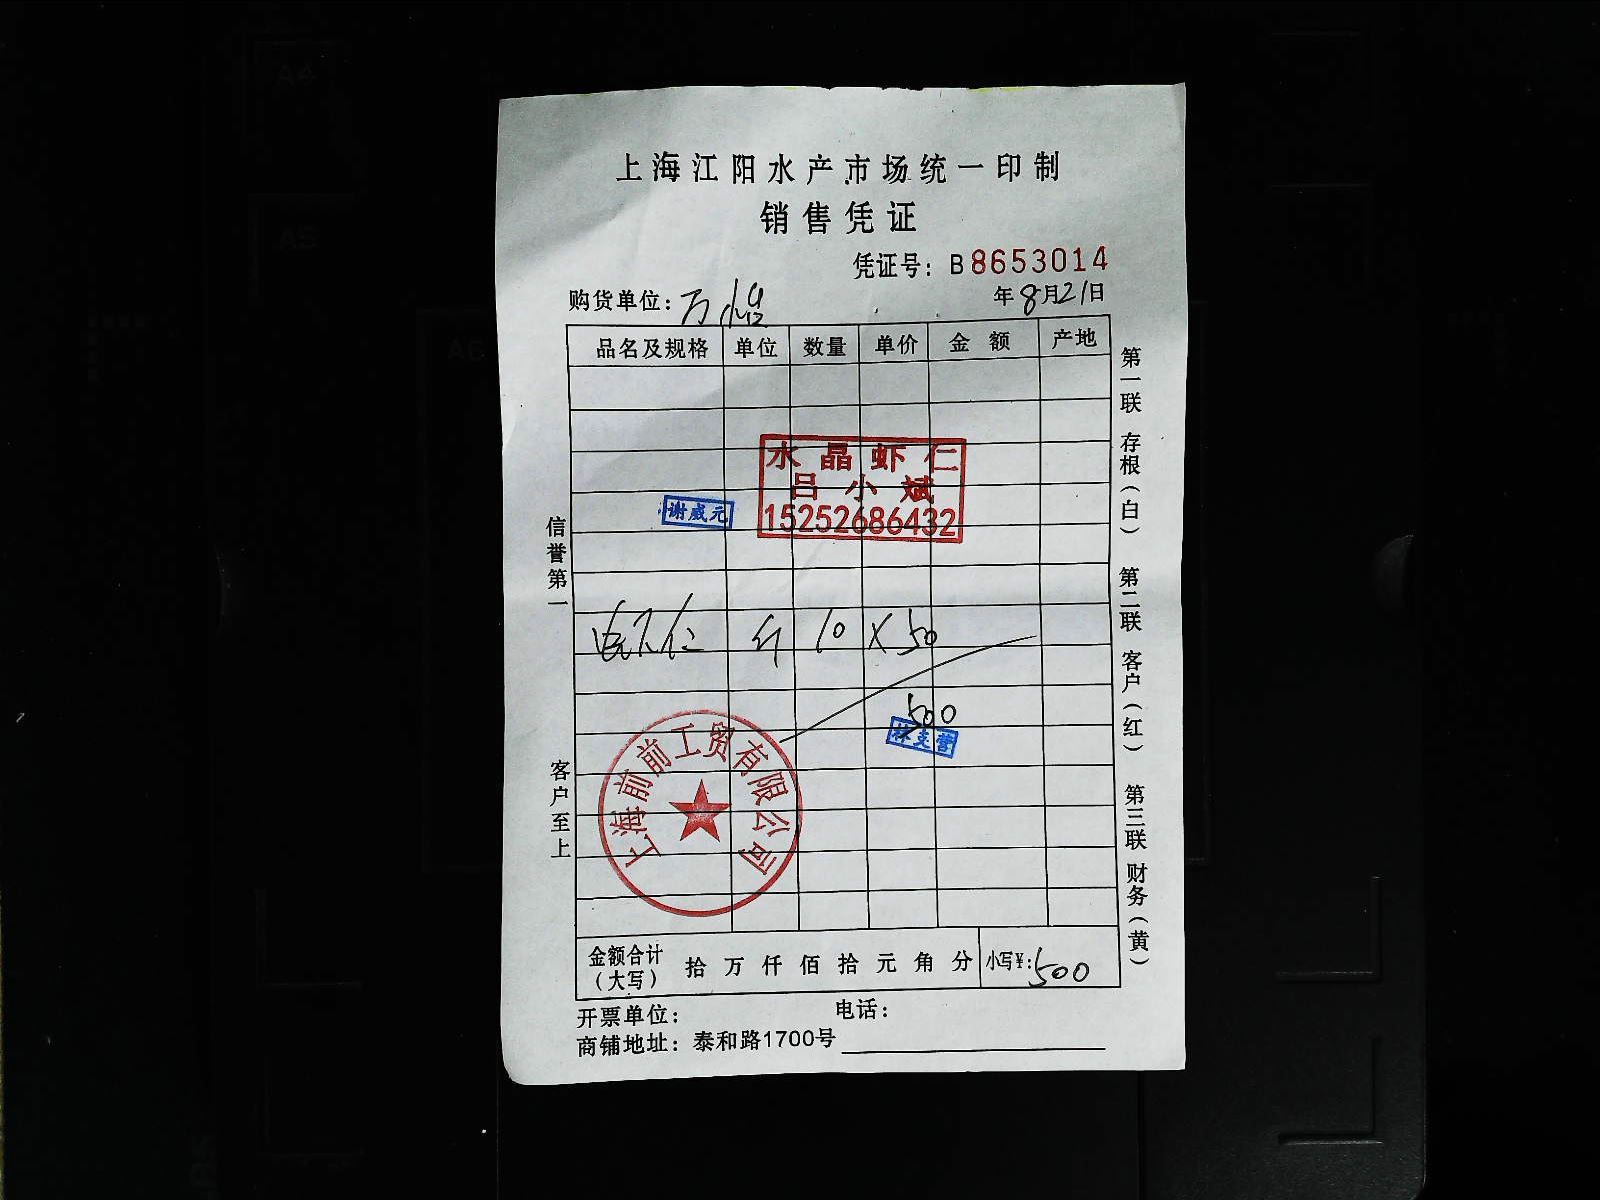 上海江阳水产市场统一印制
销售凭证
凭证号：B8653014
购货单位：万
年8月21日
品名及规格 单位 数量 单价 金额 产地
水晶虾仁
吕小斌
15252686432
谢威元
仁 斤 10 × 50
500
林支营
上海前前工贸有限公司
金额合计（大写） 拾 万 仟 佰 拾 元 角 分 小写¥：500
开票单位： 电话：
商铺地址：泰和路1700号
信誉第一
客户至上
第一联 存根（白） 第二联 客户（红） 第三联 财务（黄）
A4
A5